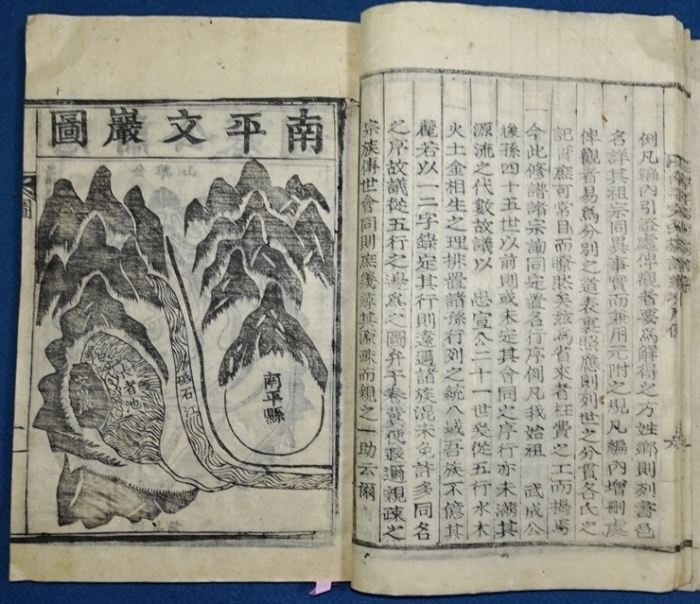 例凡編內引證處俾觀者要爲解得之方姓鄕則列書邑
名詳其祖宗同異事實而兼用元附之規凡編內增刪處
俾觀者易爲分別之道表裏照應則列世之分貫各氏之
記質庶可常目而瞭然矣玆爲省來者枉費之工而揭焉
一今此修譜諸宗詢同定置各行序例凡我始祖 武成公
後孫四十五世以前則或未定其會同之序行亦未滿其
源流之代數故議以 忠宣公二十一世爰從五行水木
火土金相生之理排置諸孫行列之統八域吾族不億其
麗若以一二字錄定其行則遠邇諸族混未免許多同名
之序故議從五行之邊爲之圖弁于卷冀使遐邇親疎之
宗族傳世會同則庶幾尋其源疎而親之一助云爾
南平文巖圖
南平縣
砥石江
長者池
文巖
圖